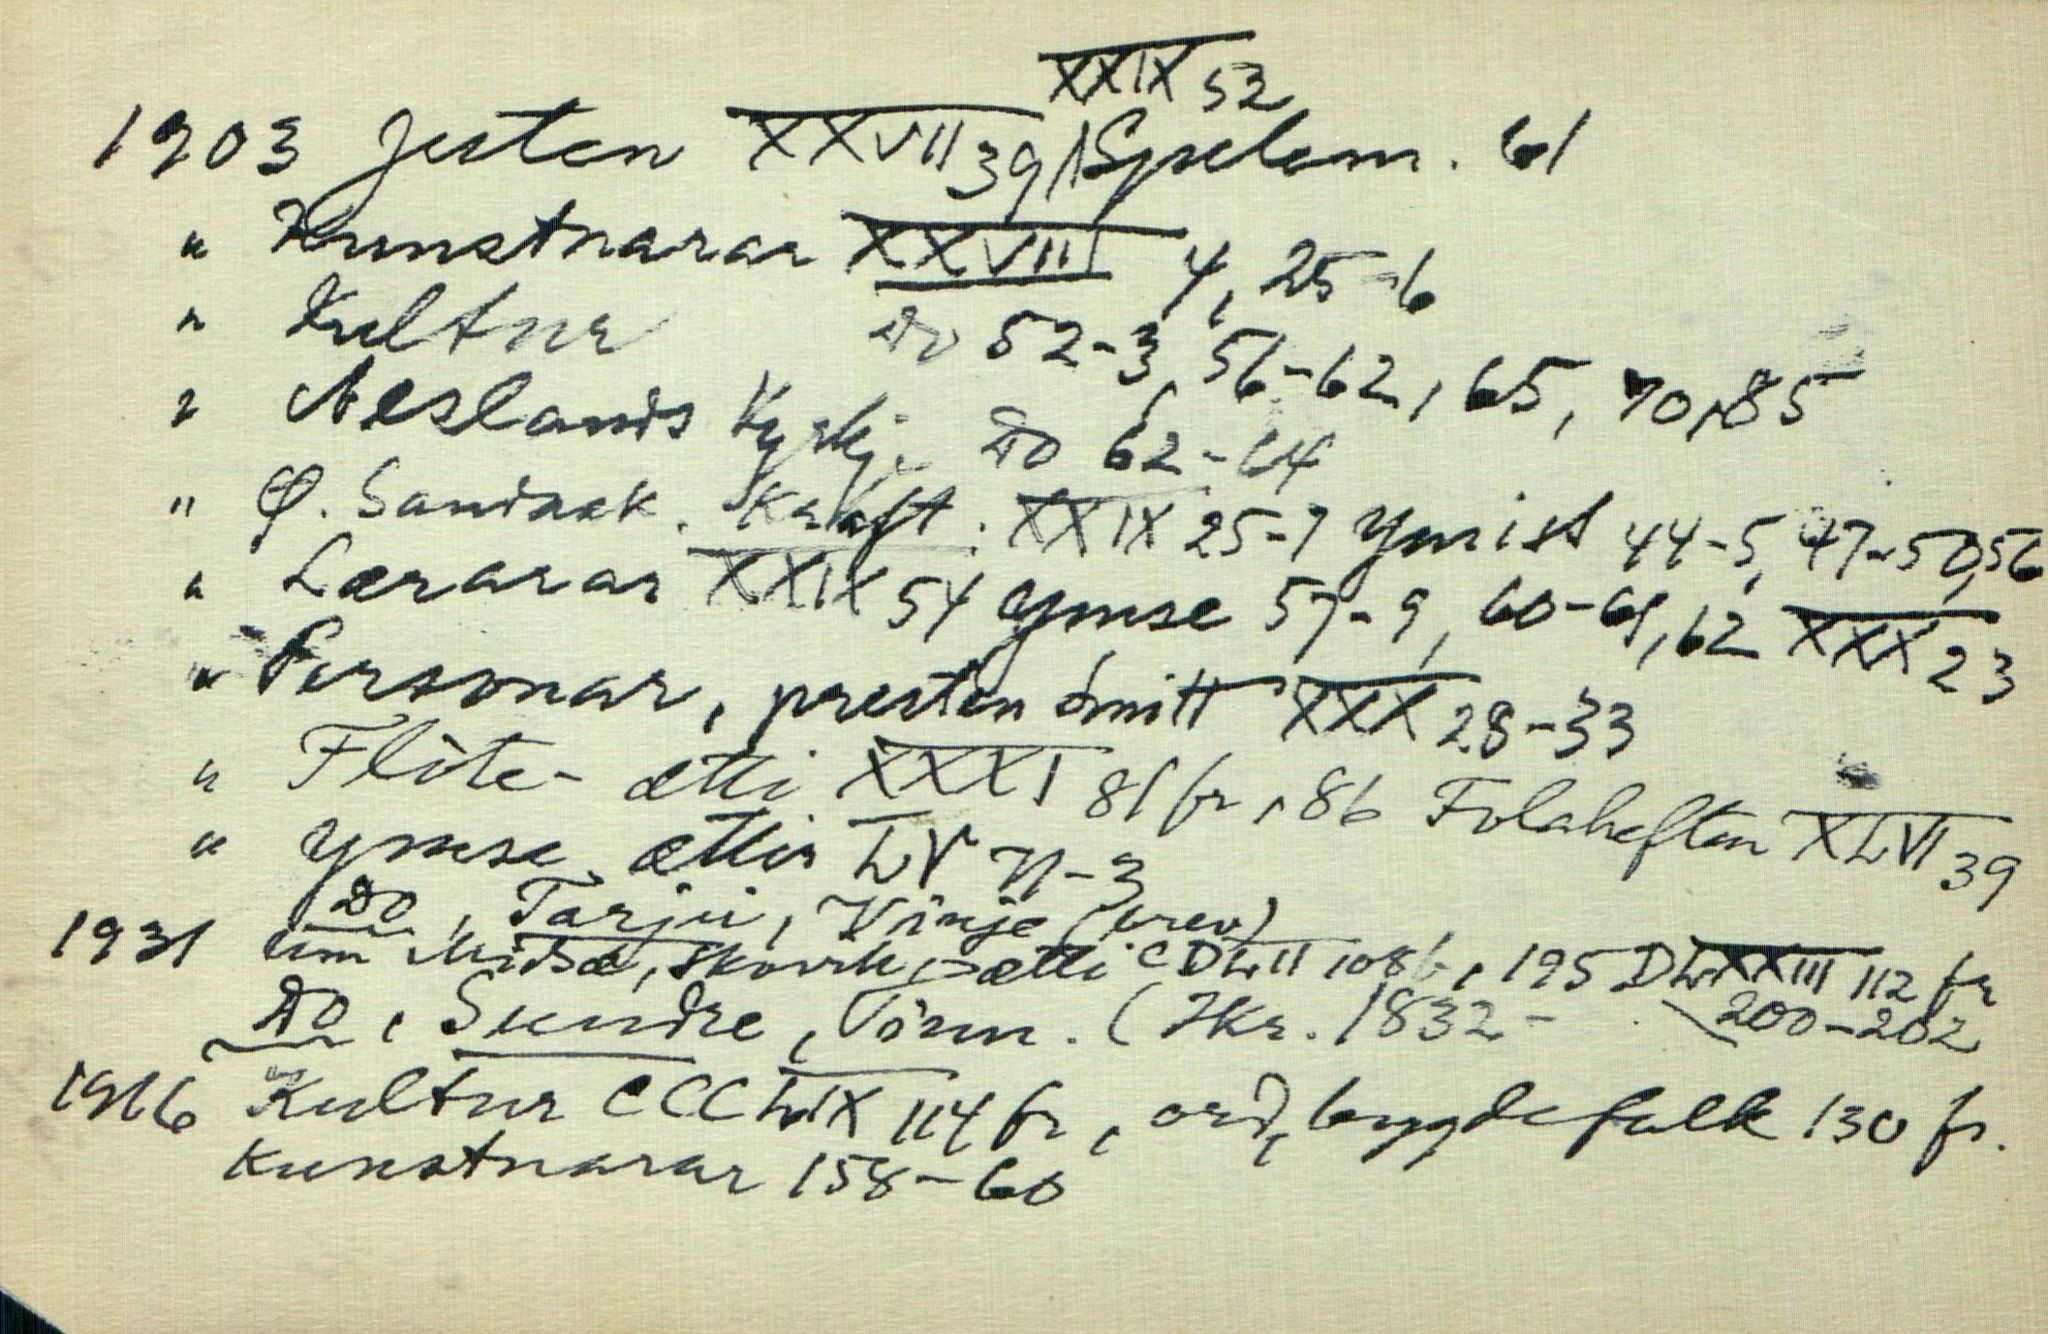 XXIX 52
1903 Jesten XXVII 39, Spelem. 61
" Kunstnarar XXVIII 4, 25-6
" Kultur Do 52-3, 56-62, 65, 70, 85
" Neslands Kyrkje Do 62-64
" Ø. Sandsak. Kraft. XXIX 25-7 Ymist 44-5, 47-50, 56
" Lærarar XXIX 54 Ymse 57-9, 60-61, 62 XXX 23
" Personar, presten Smitt XXX 28-33
" Flote-ætti XXXI 81 fr, 86 Folaheften XLVI 39
" Ymse ættir LV 71-3
Do, Tarjei, Vinje (brev)
1931 um Midsæ, Skovih ætti CDLII 108 , 195 DLXXIII 112 fr
Do, Sundre, Tinn. (Hkr. 1832- 200-202
1916 Kultur CCCLIX 114 fr, ord, bygdefolk 130 fr.
Kunstnarar 158-60